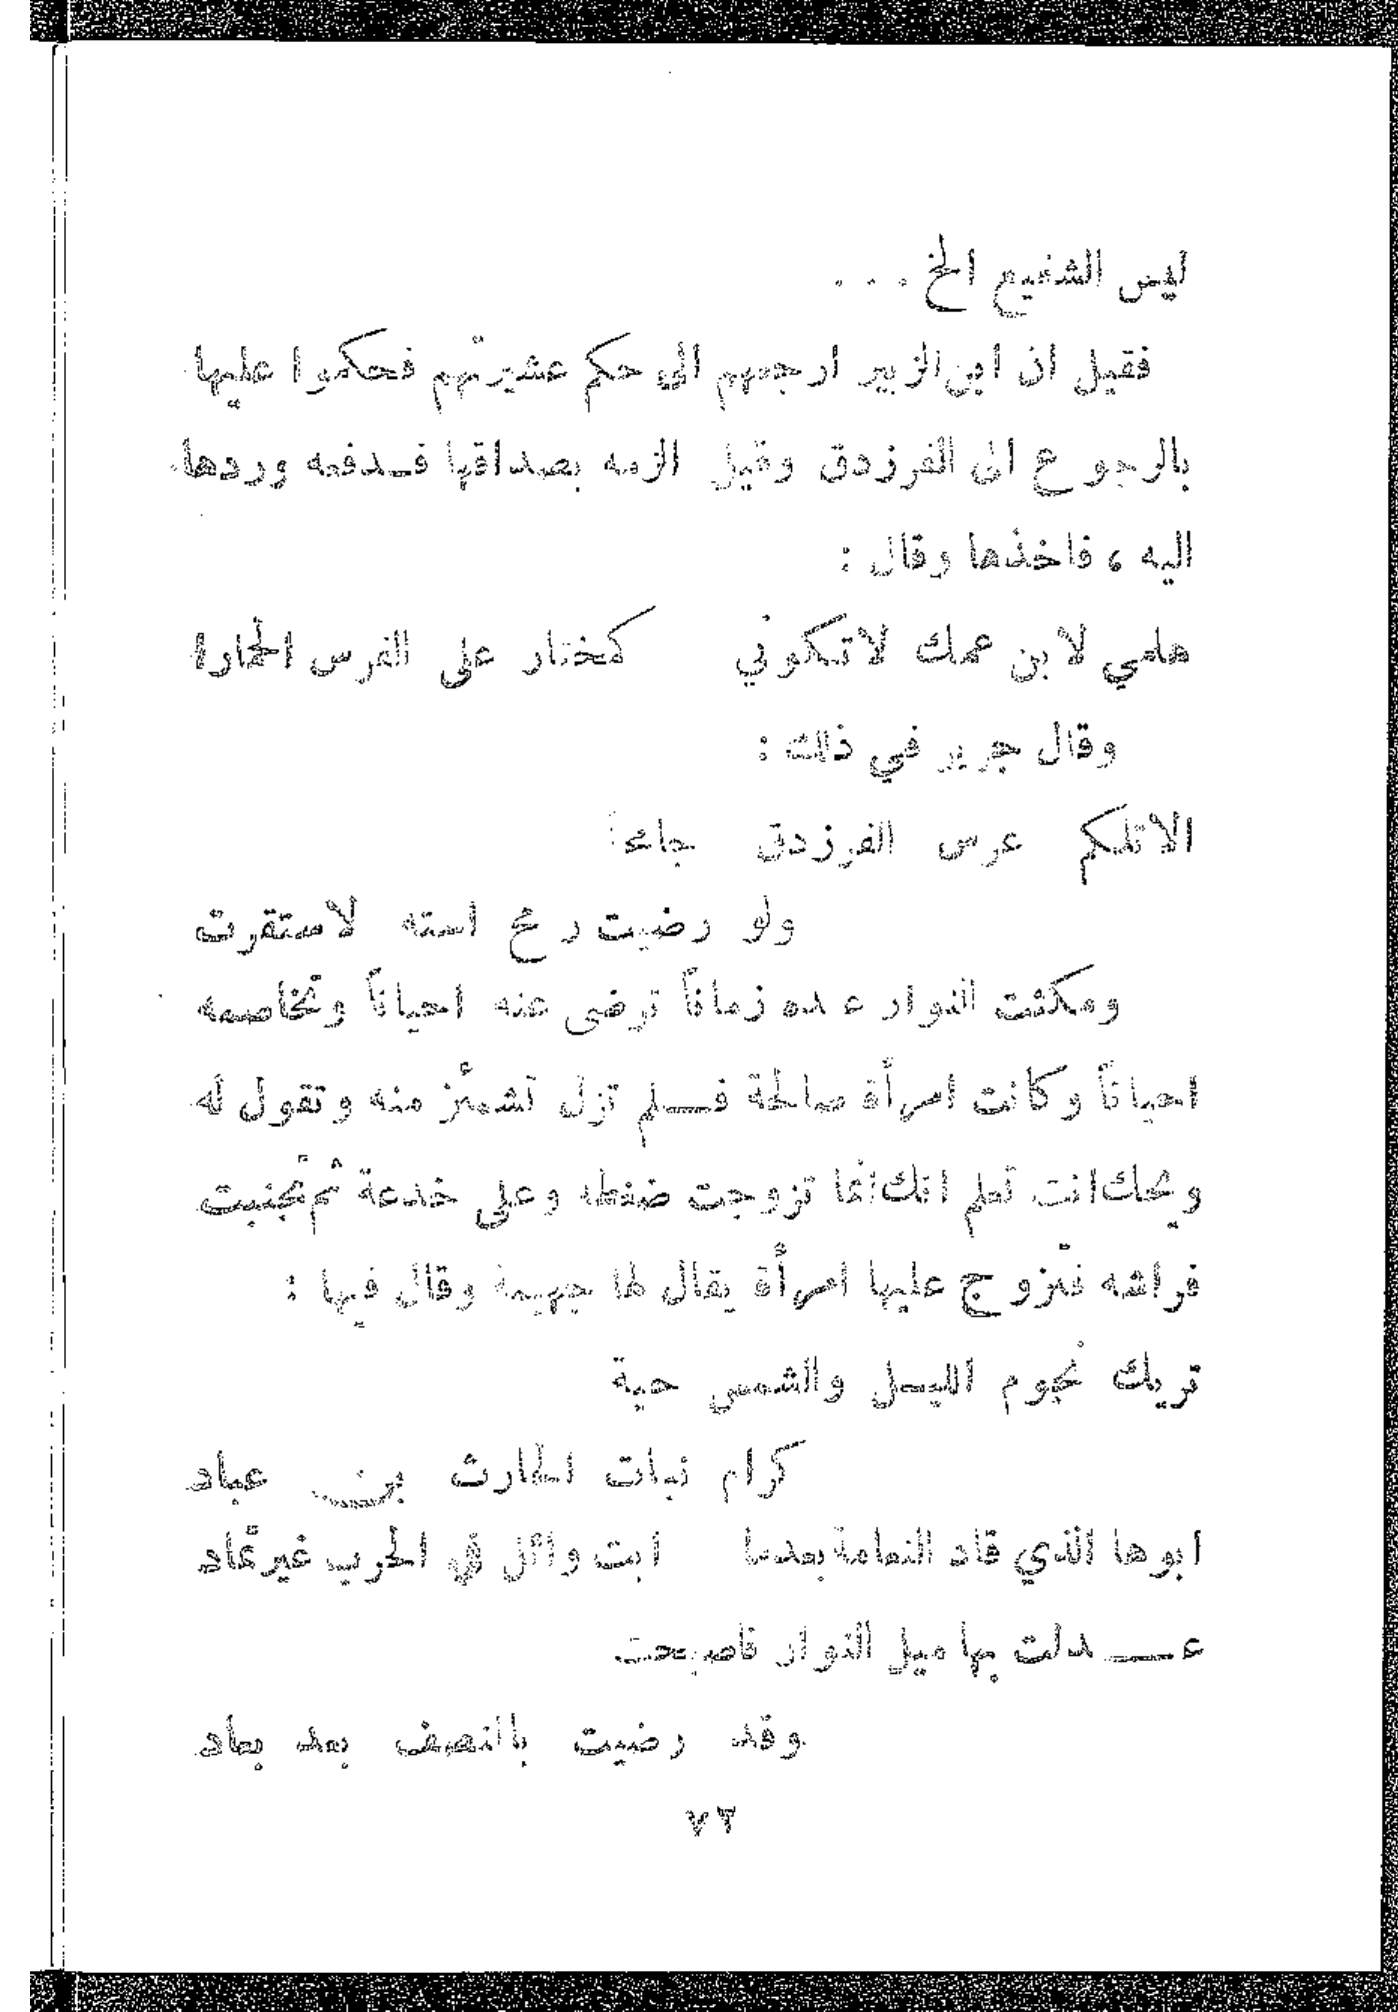 ليس الشفيع الخ . . .
فقيل ان ابن الزبير ارجعهم الى حكم عشيرتهم فحكموا عليها
بالرجوع الى الفرزدق وقيل الزمه بصداقها فـدفعه وردها
اليه ، فاخذها وقال :
هلمي لابن عمك لاتكوني كمختار على الفرس الحمارا
وقال جرير في ذلك :
الاتلكم عرس الفرزدق جامحا
ولو رضيت رمح استه لاستقرت
ومكثت النوار عنده زماناً ترضى عنه احياناً وتخاصمه
احياناً وكانت امرأة صالحة فـــلم تزل تشمئز منه وتقول له
ويحك انت تعلم انك انما تزوجت ضغطه وعلى خدعة ثم تجنبت
فراشه فتزوج عليها امرأة يقال لها جهيمة وقال فيها :
تريك نجوم الليـل والشمس حية
كرام نبات الحارث بن عباد
ابوها الذي قاد النعامة بعدما ابت وائل في الحرب غير تماد
عـــدلت بها ميل النوار فاصبحت
وقد رضيت باالنصف بعد بعاد
٧٣